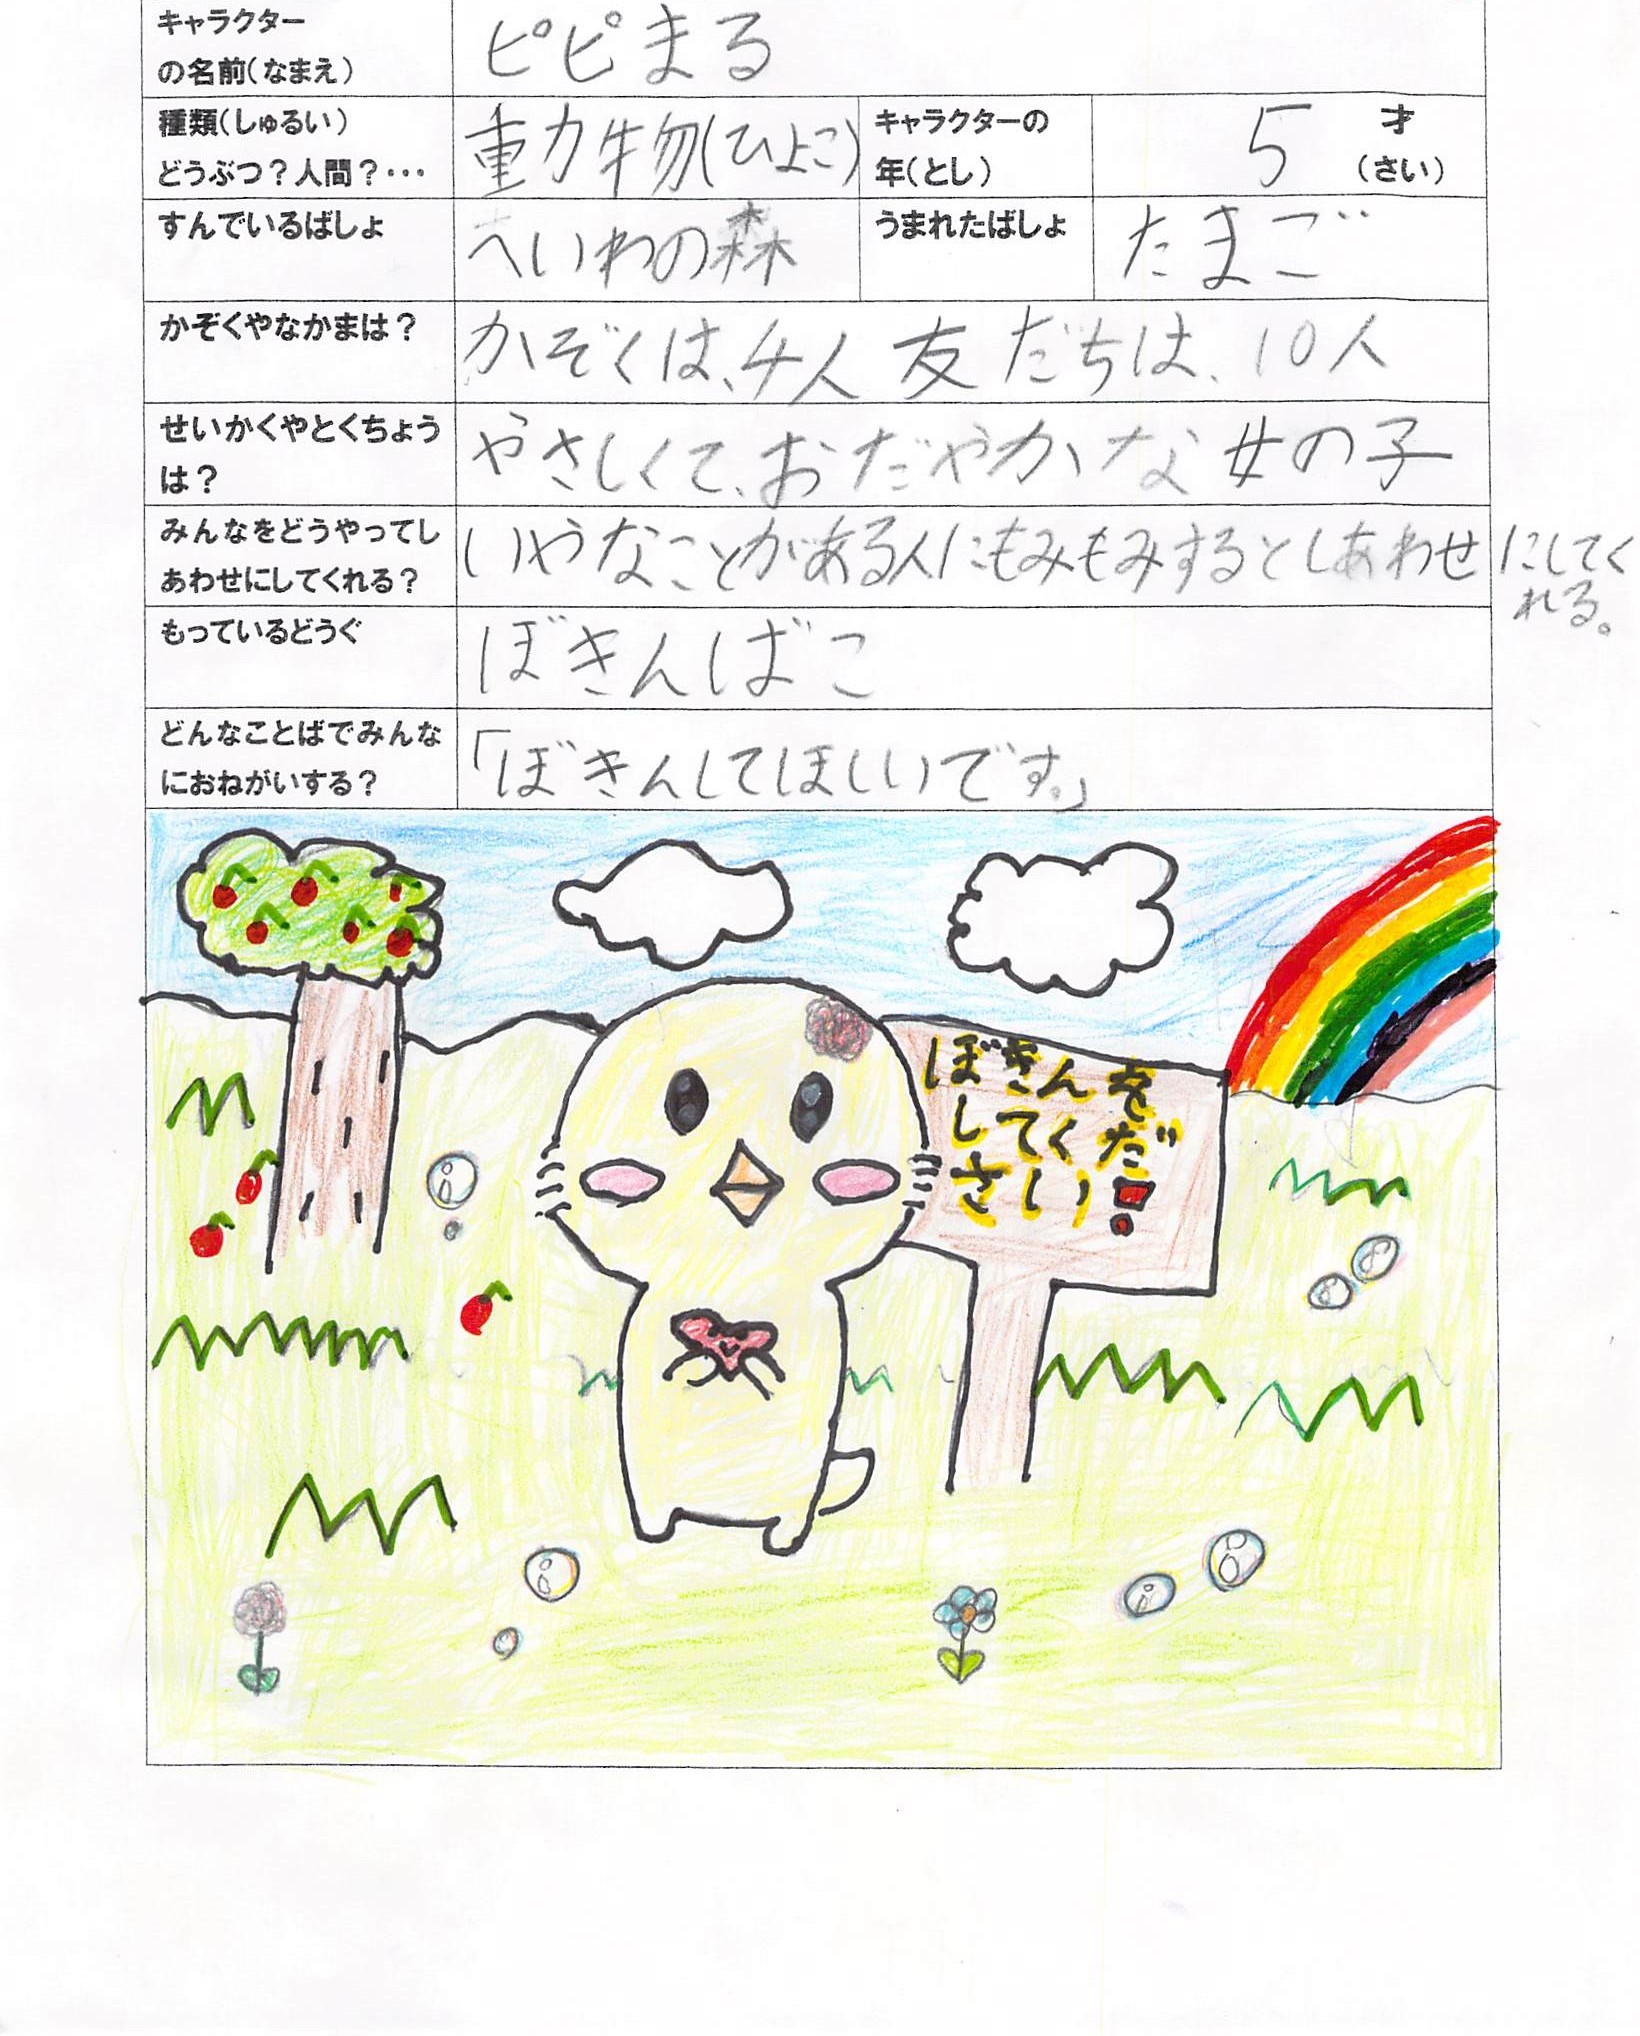 キャラクター
の名前(なまえ)
ピピまる
種類(しゅるい)
どうぶつ?人間?・・・
動物(ひよこ)
キャラクターの
年(とし)
5
才
(さい)
すんでいるばしょ
へいわの森
うまれたばしょ
たまご
かぞくやなかまは?
かぞくは、4人 友だちは、10人
せいかくやとくちょう
は?
やさしくて、おだやかな女の子
みんなをどうやってし
あわせにしてくれる?
いやなことがある人にもみもみするとしあわせにしてく
れる。
もっているどうぐ
ぼきんばこ
どんなことばでみんな
におねがいする?
「ぼきんしてほしいです。」
ぼきんを
してくだ
さい!